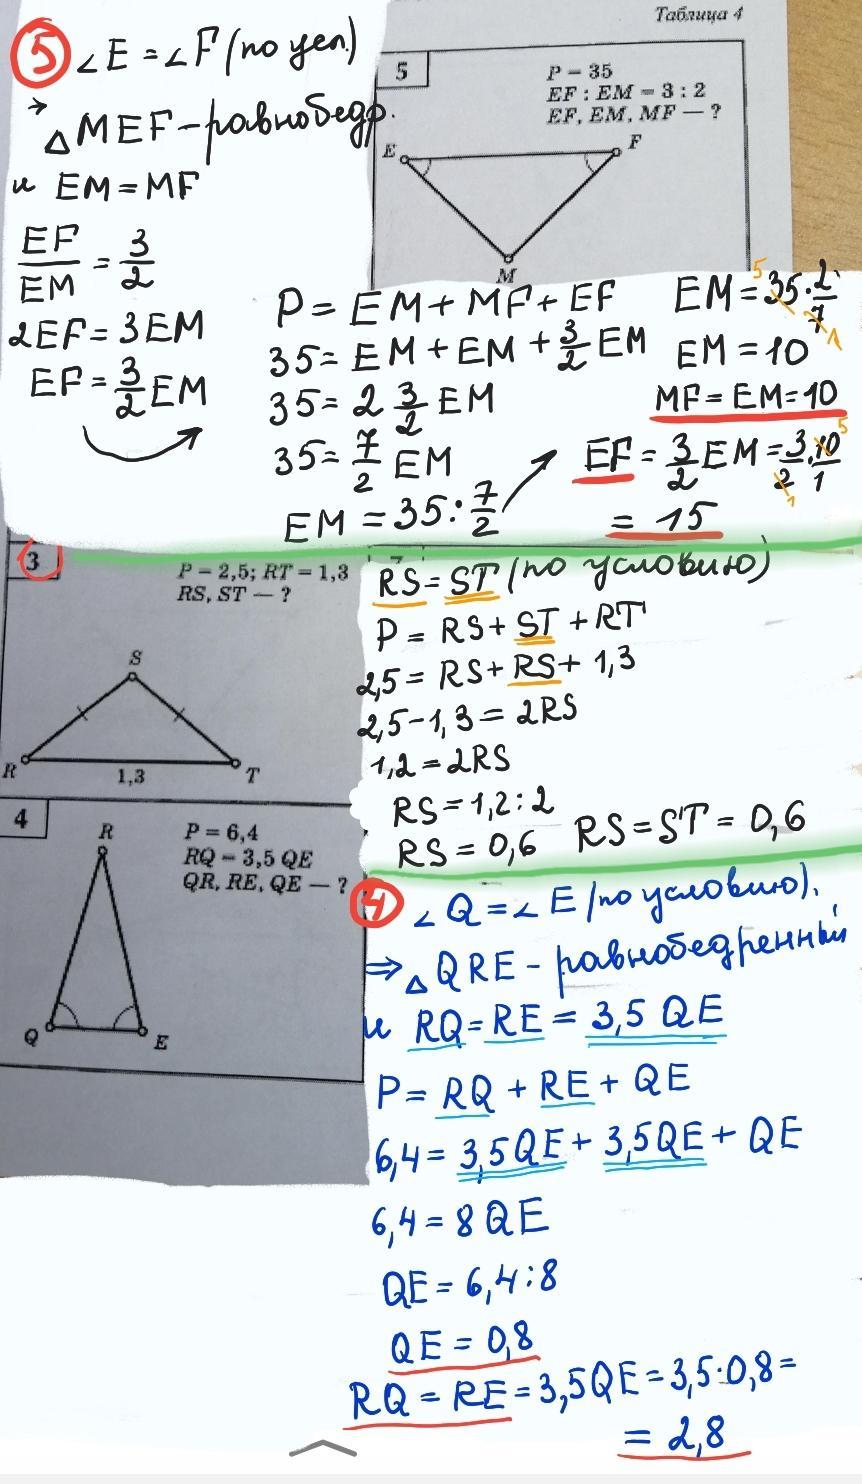 Таблица 4
5 ∠E = ∠F (по усл.)
→ △MEF – равнобедр.
и EM = MF
EF/EM = 3/2
2EF = 3EM
EF = 3/2 EM
5
P = 35
EF : EM = 3 : 2
EF, EM, MF — ?
E
F
M
P = EM + MF + EF
35 = EM + EM + 3/2 EM
35 = 2 3/2 EM
35 = 7/2 EM
EM = 35 : 7/2
EM = 35 · 2/7
5
1
EM = 10
MF = EM = 10
EF = 3/2 EM = 3·10/2 1
5
1
= 15
3
P = 2,5; RT = 1,3
RS, ST — ?
S
R
1,3
T
RS = ST (по условию)
P = RS + ST + RT
2,5 = RS + RS + 1,3
2,5 - 1,3 = 2RS
1,2 = 2RS
RS = 1,2 : 2
RS = 0,6 RS = ST = 0,6
4
R
P = 6,4
RQ = 3,5 QE
QR, RE, QE — ?
Q
E
4 ∠Q = ∠E (по условию),
⇒ △QRE – равнобедренный
и RQ = RE = 3,5 QE
P = RQ + RE + QE
6,4 = 3,5QE + 3,5QE + QE
6,4 = 8 QE
QE = 6,4 : 8
QE = 0,8
RQ = RE = 3,5QE = 3,5·0,8 =
= 2,8